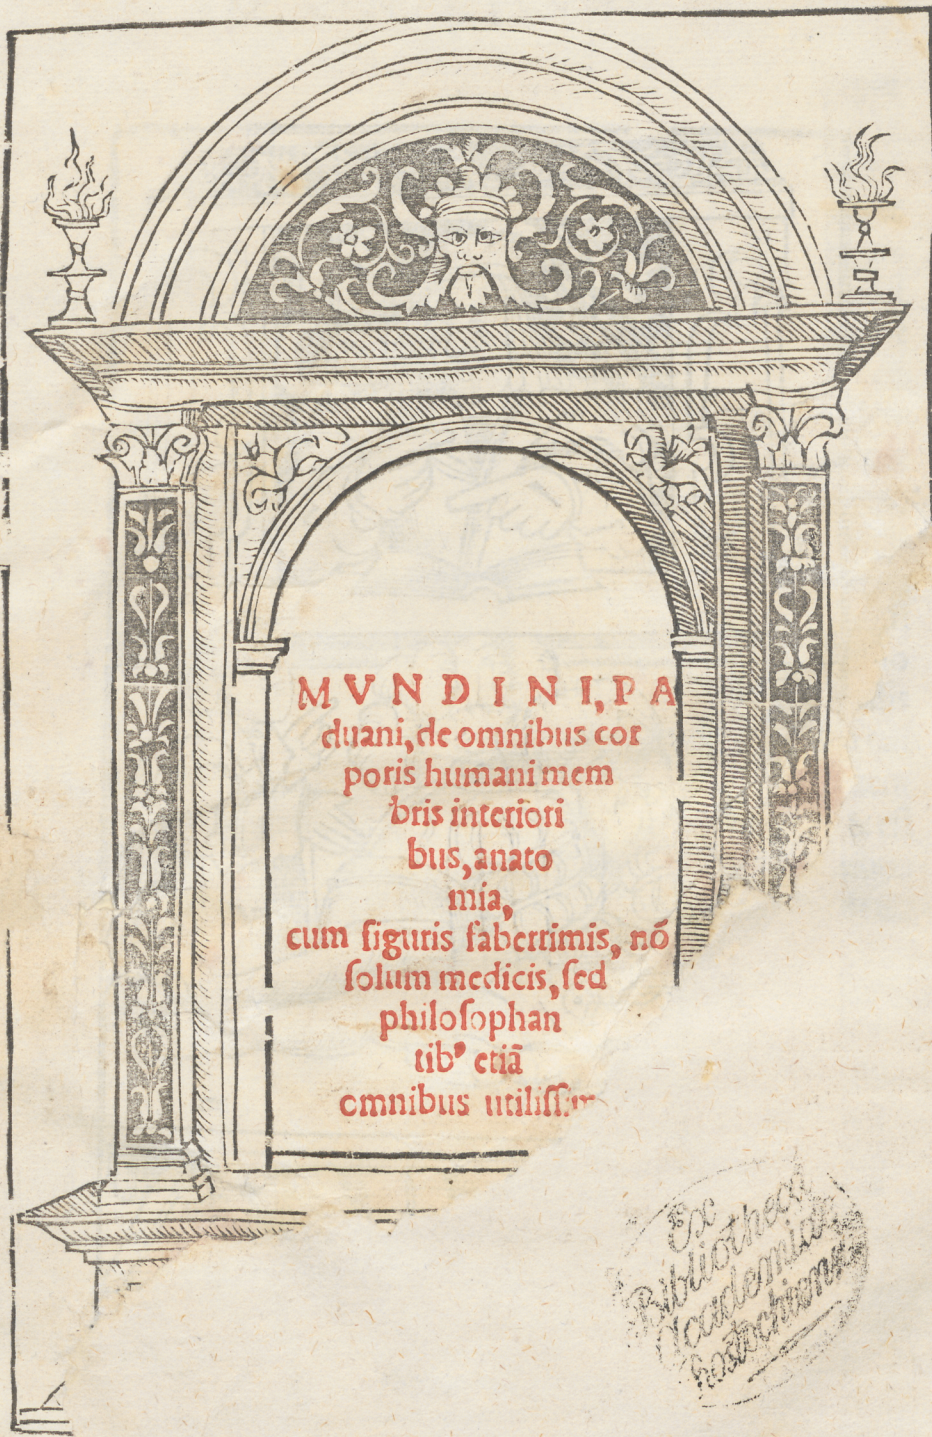 MVNDINI, PA
duani, de omnibus cor
poris humani mem
bris interiori
bus, anato
mia,
cum figuris faberrimis, nó
ſolum medicis, ſed
philoſophan
tibꝰ etiā
omnibus utiliſſim
Ex
Bibliotheca
Academiae
Rostochiensi